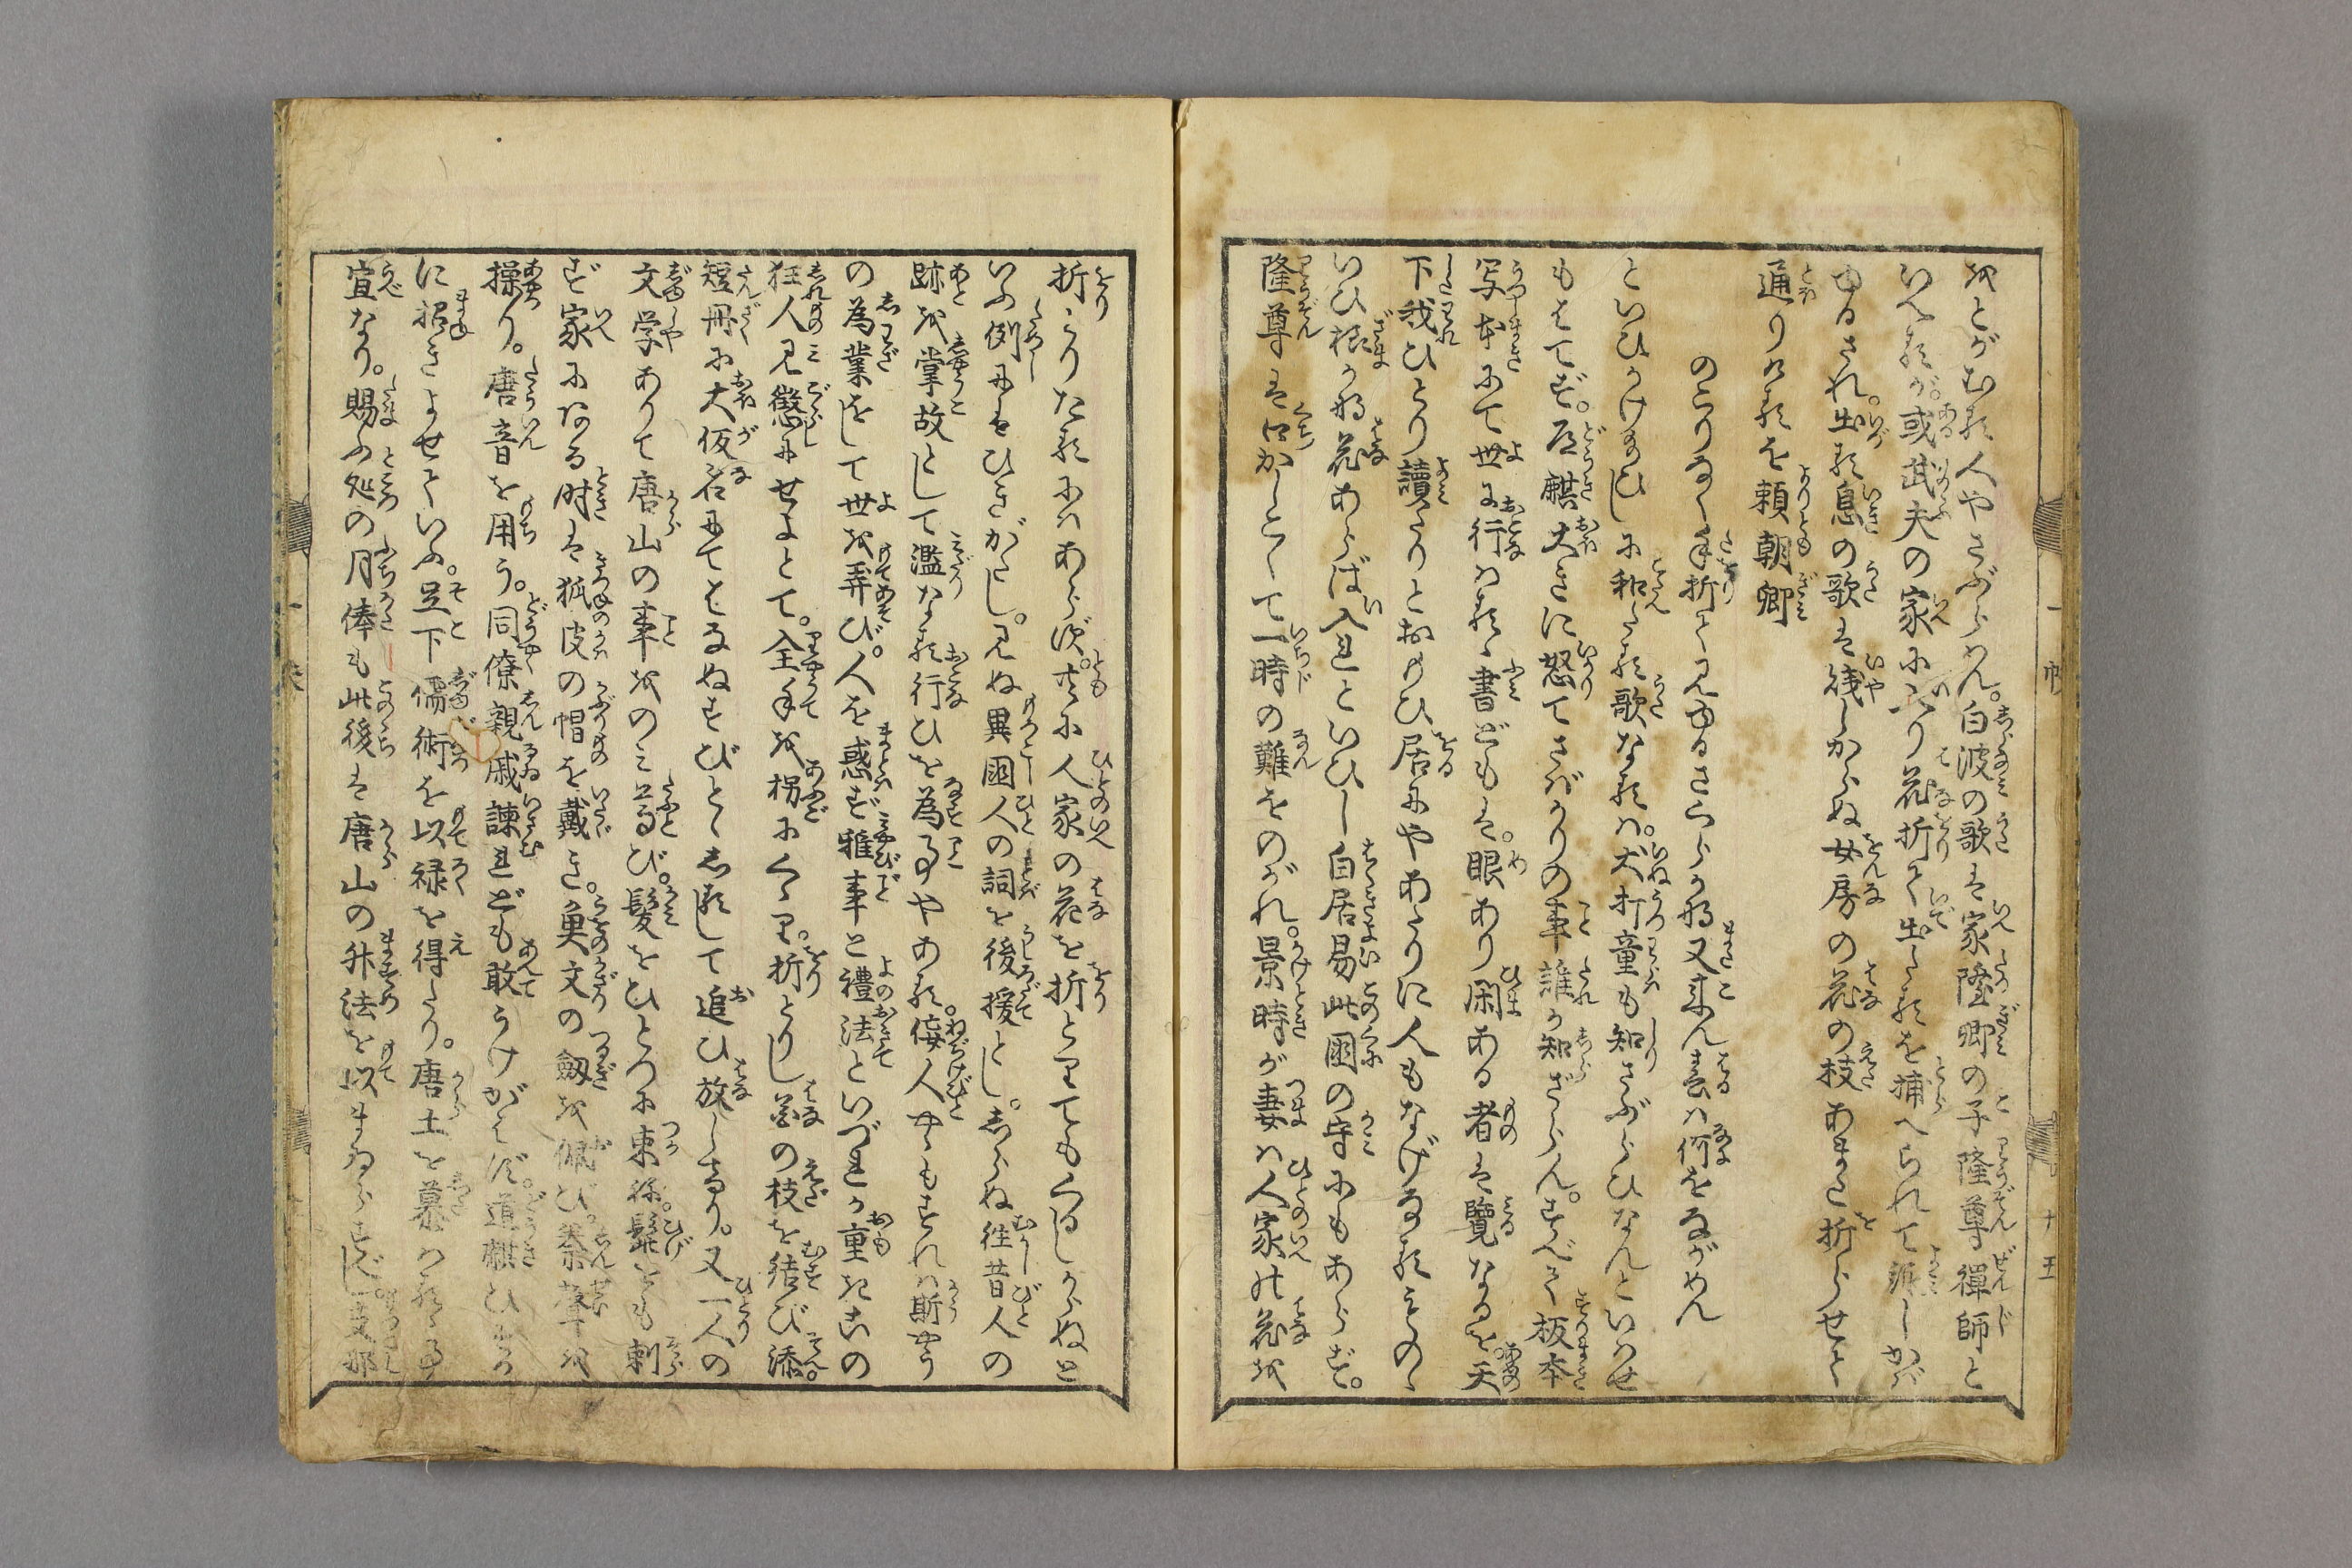 をとがむる人やさぶらはん。白波の歌は家隆卿の子隆尊禅師と
いへるが。或武夫の家に入り花折て出たるを捕へられて詠しかば
ゆるされ。出る息の歌は賎しからぬ女房の花の枝あまた折らせて
通りけるを頼朝卿
のこりなく手折て見ゆるさくらかな又来ん春は何をながめん
といひかけ給ひしに和たる歌なるは。犬打童も知さぶらひなんといはせ
もはてず。道麒大きに怒てさばかりの事誰か知ざらん。すべて板本
写本にて世に行はるゝ書どもは。眼あり閑ある者は覧なるを。天
下我ひとり讀たりとおもひ居にやあたりに人もなげなるものゝ
いひ様かな花あらば入れといひし白居易此国の守にもあらず。
隆尊は口かしこくて一時の難をのがれ。景時が妻は人家の花を
折とりたるにはあらず。共に人家の花を折とりてもくるしからぬと
いふ例にはひきがたし。見ぬ異国人の詞を後援とし。しらぬ往昔人の
跡を掌故として濫なる行ひを為事やある。佞人やゝもすれば斯やう
の為業をして世を弄び。人を惑ず雅事と禮法といづれか重きこの
狂人見懲にせよとて。全手を拐にくゝり。折とりし花の枝を結び添。
短冊に大仮名にてはなぬすびとゝしるして追ひ放しける。又一人の
文学ありて唐山の事をのみ尊び。髪をひとつに束ね。髭をも剃
ず家にある时は狐皮の帽を戴き。魚文の劔を佩び。秦聲を
操り。唐音を用う。同僚親戚諫れども敢うけがはず。道麒ひそか
に招きよせていふ。足下儒術を以禄を得たり。唐土を慕はるゝ事
宜なり。賜ふ処の月俸も此後は唐山の升法を以まゐらすべし。